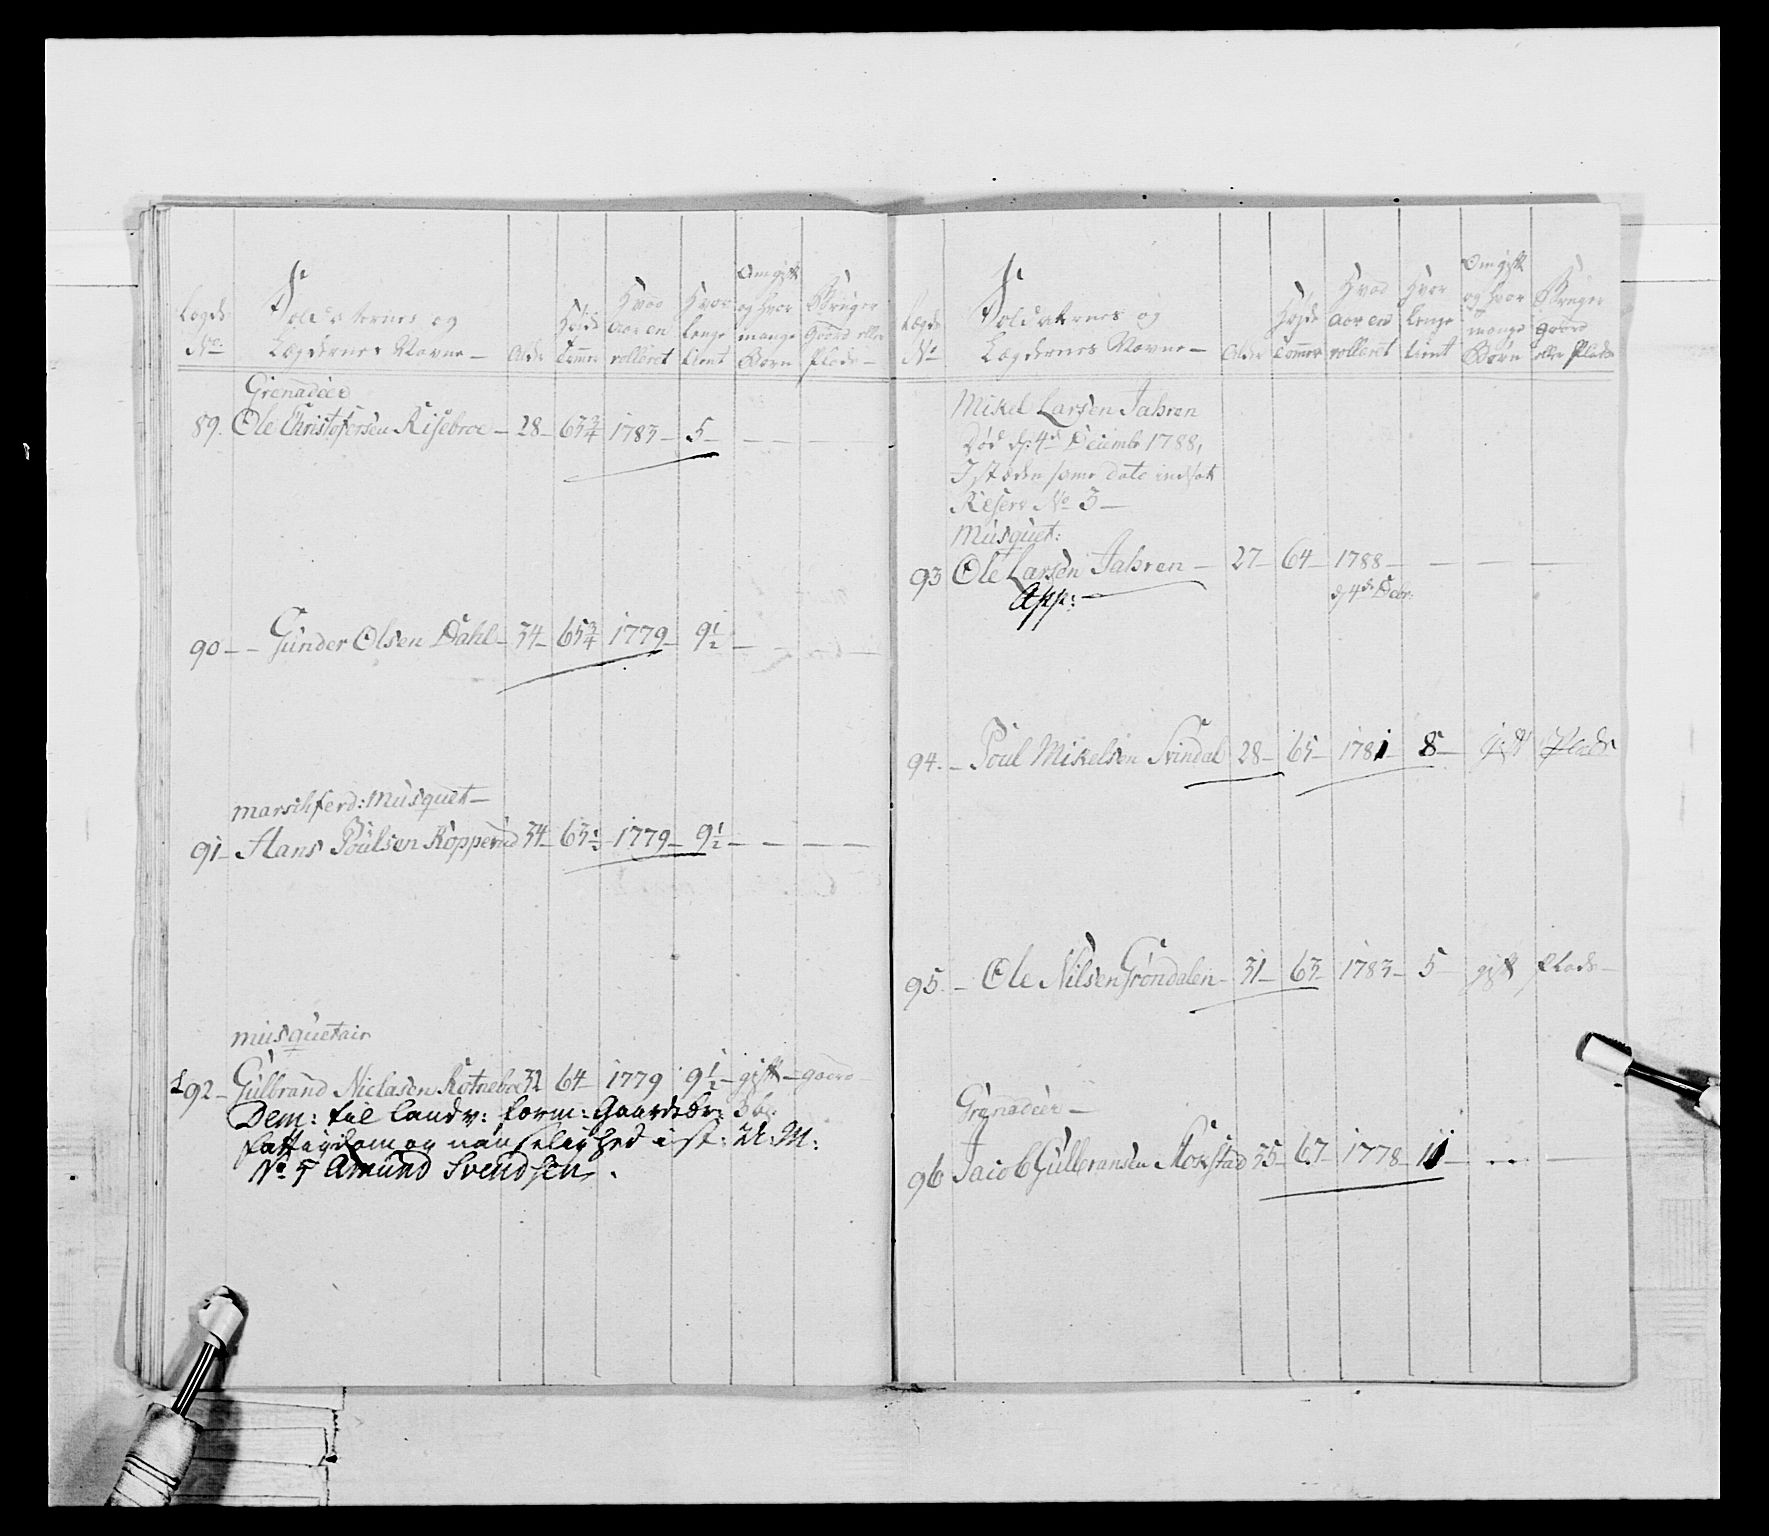 Lægds No | Soldaternes og Lægdernes Navne | Alder | Høide Tommer | Hvad Aar en rolleret | Hvor lenge tient | Om gift og hvor mange Børn | Bruger Gaard eller Plads
Grenadeer
89. Ole Christofersen Risebroe — 28 — 63 3/4 1783 — 5 — — —
90 — Gunder Olsen Dahl — 34 — 65 3/4 1779 — 9 1/2 — — —
marschferd: Musquet —
91 — Hans Poulsen Kopperud 34 — 63 1/2 — 1779 — 9 1/2 — — — —
musquetair
92 — Gulbrand Niclasen Kotneboe 32 64 1779 9 1/2 — gift — gaard
Dem: til landv: form: Gaardsbr:
fattigdom og uanselighed i st: U: M:
No 5 Amund Svendsen.
Lægds No | Soldaternes og Lægdernes Navne — | Alder | Høyde Tommer | Hvad Aar en rolleret | Hvor lenge tient | Om gift og hvor mange Børn | Bruger Gaard eller Plads
Mikel Larsen Jahren
Død d: 4de Decembr 1788,
I stæden same dato indsat
Reserv No 3 —
Musquet:
93 Ole Larsen Jahren — 27 — 64 — 1788 — — — —
App: — d 4de Debr:
94. — Poul Mikelsen Svindal 28 — 65 — 1781 — 8 — gift Plads
95. — Ole Nilsen Grøndalen — 31 — 63 — 1783 — 5 — gift plads —
Grenadeer —
96 Jacob Gulbransen Mokstad 35 — 67 — 1778 — 11 — — —